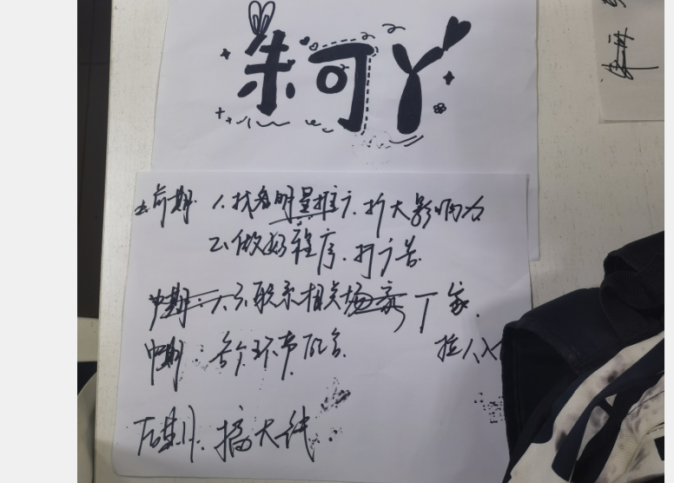 朱可丫
2.前期 1.找看明星推广,扩大影响力
2.做好程序,打广告
中期: 3.联系相关场家厂家.
中期:各个环节配合
拉人入
后期:搞大钱